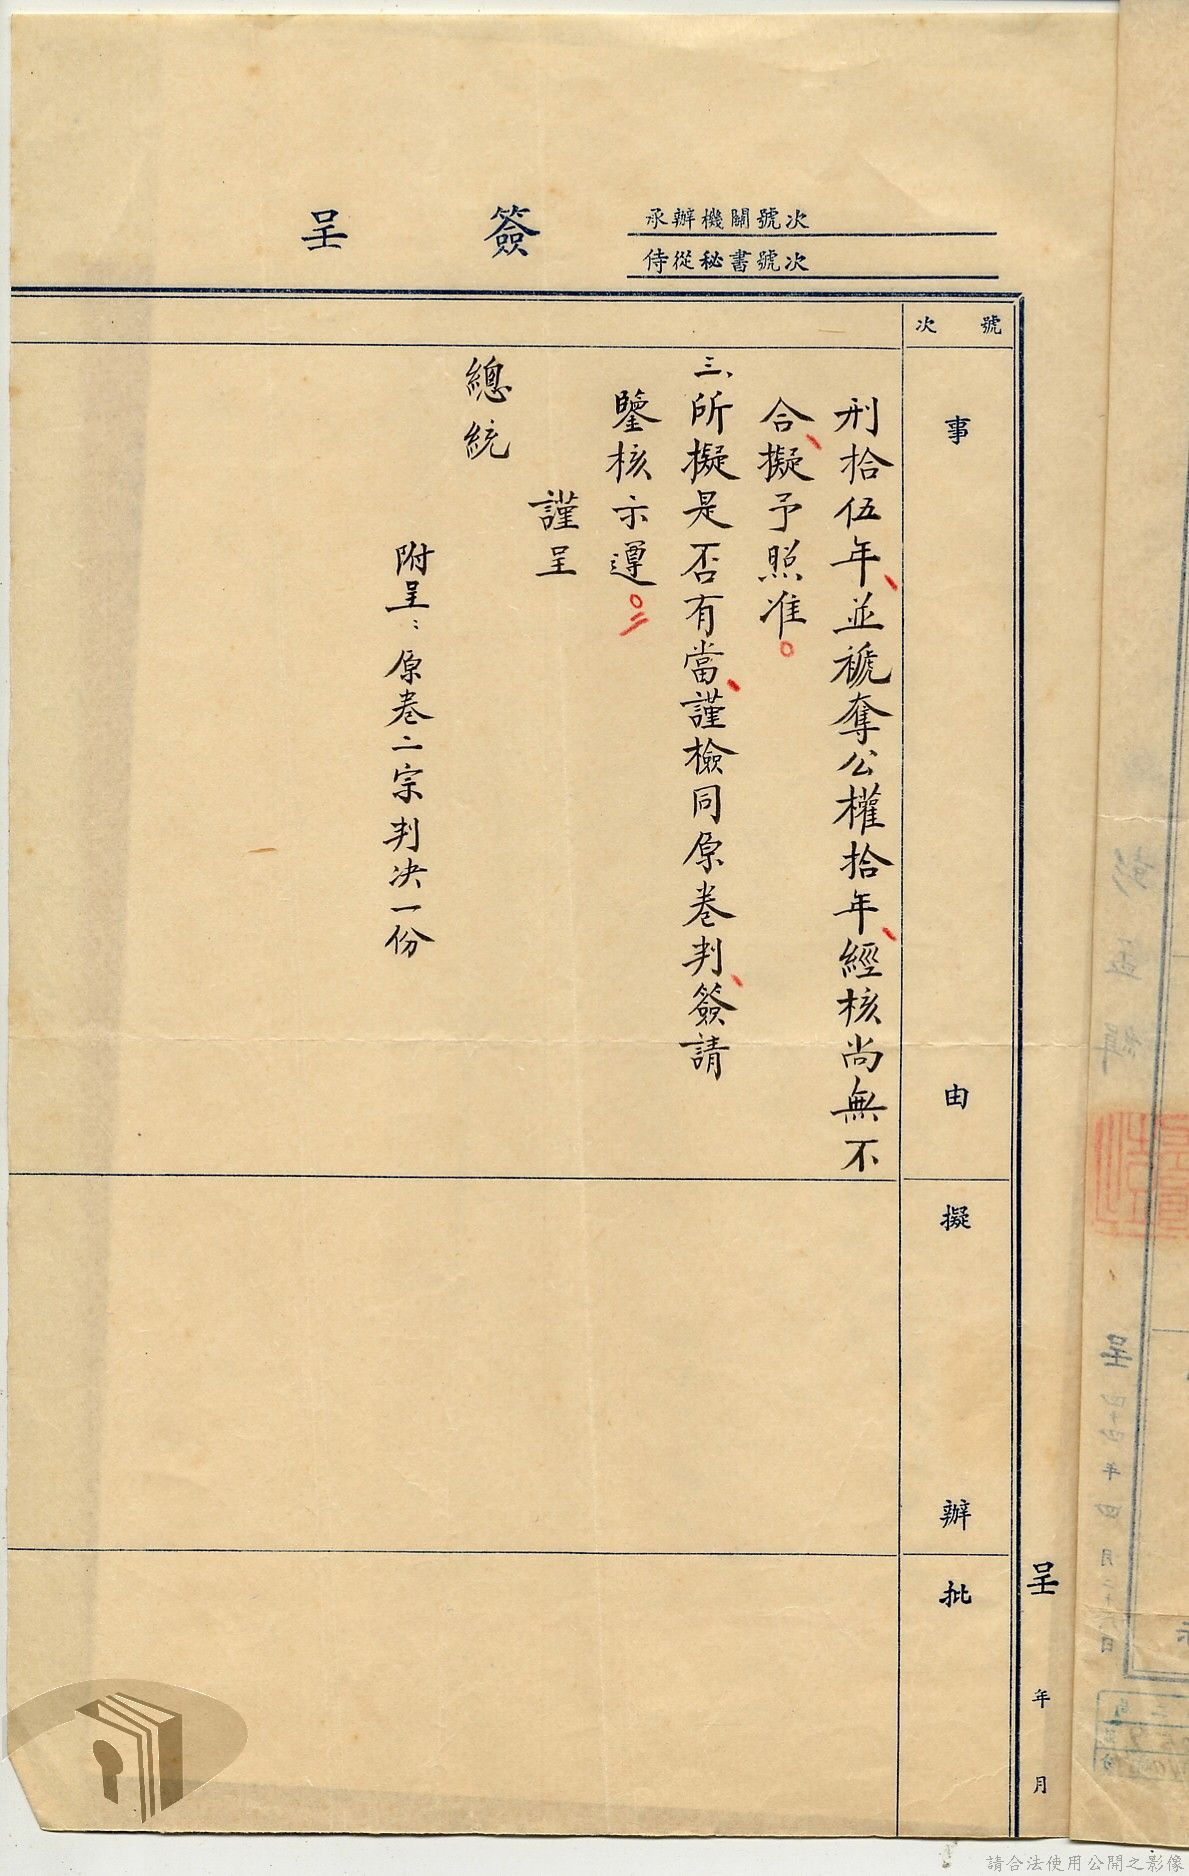 簽呈
承辦機關號次
侍從秘書號次
號次
事由
擬辦
批
呈 年 月
刑拾伍年、並褫奪公權拾年、經核尚無不
合、擬予照准。
三、所擬是否有當、謹檢同原卷判、簽請
鑒核示遵。
謹呈
總統
附呈：原卷二宗判決一份
呈 四十四年四月二十八日
請合法使用公開之影像